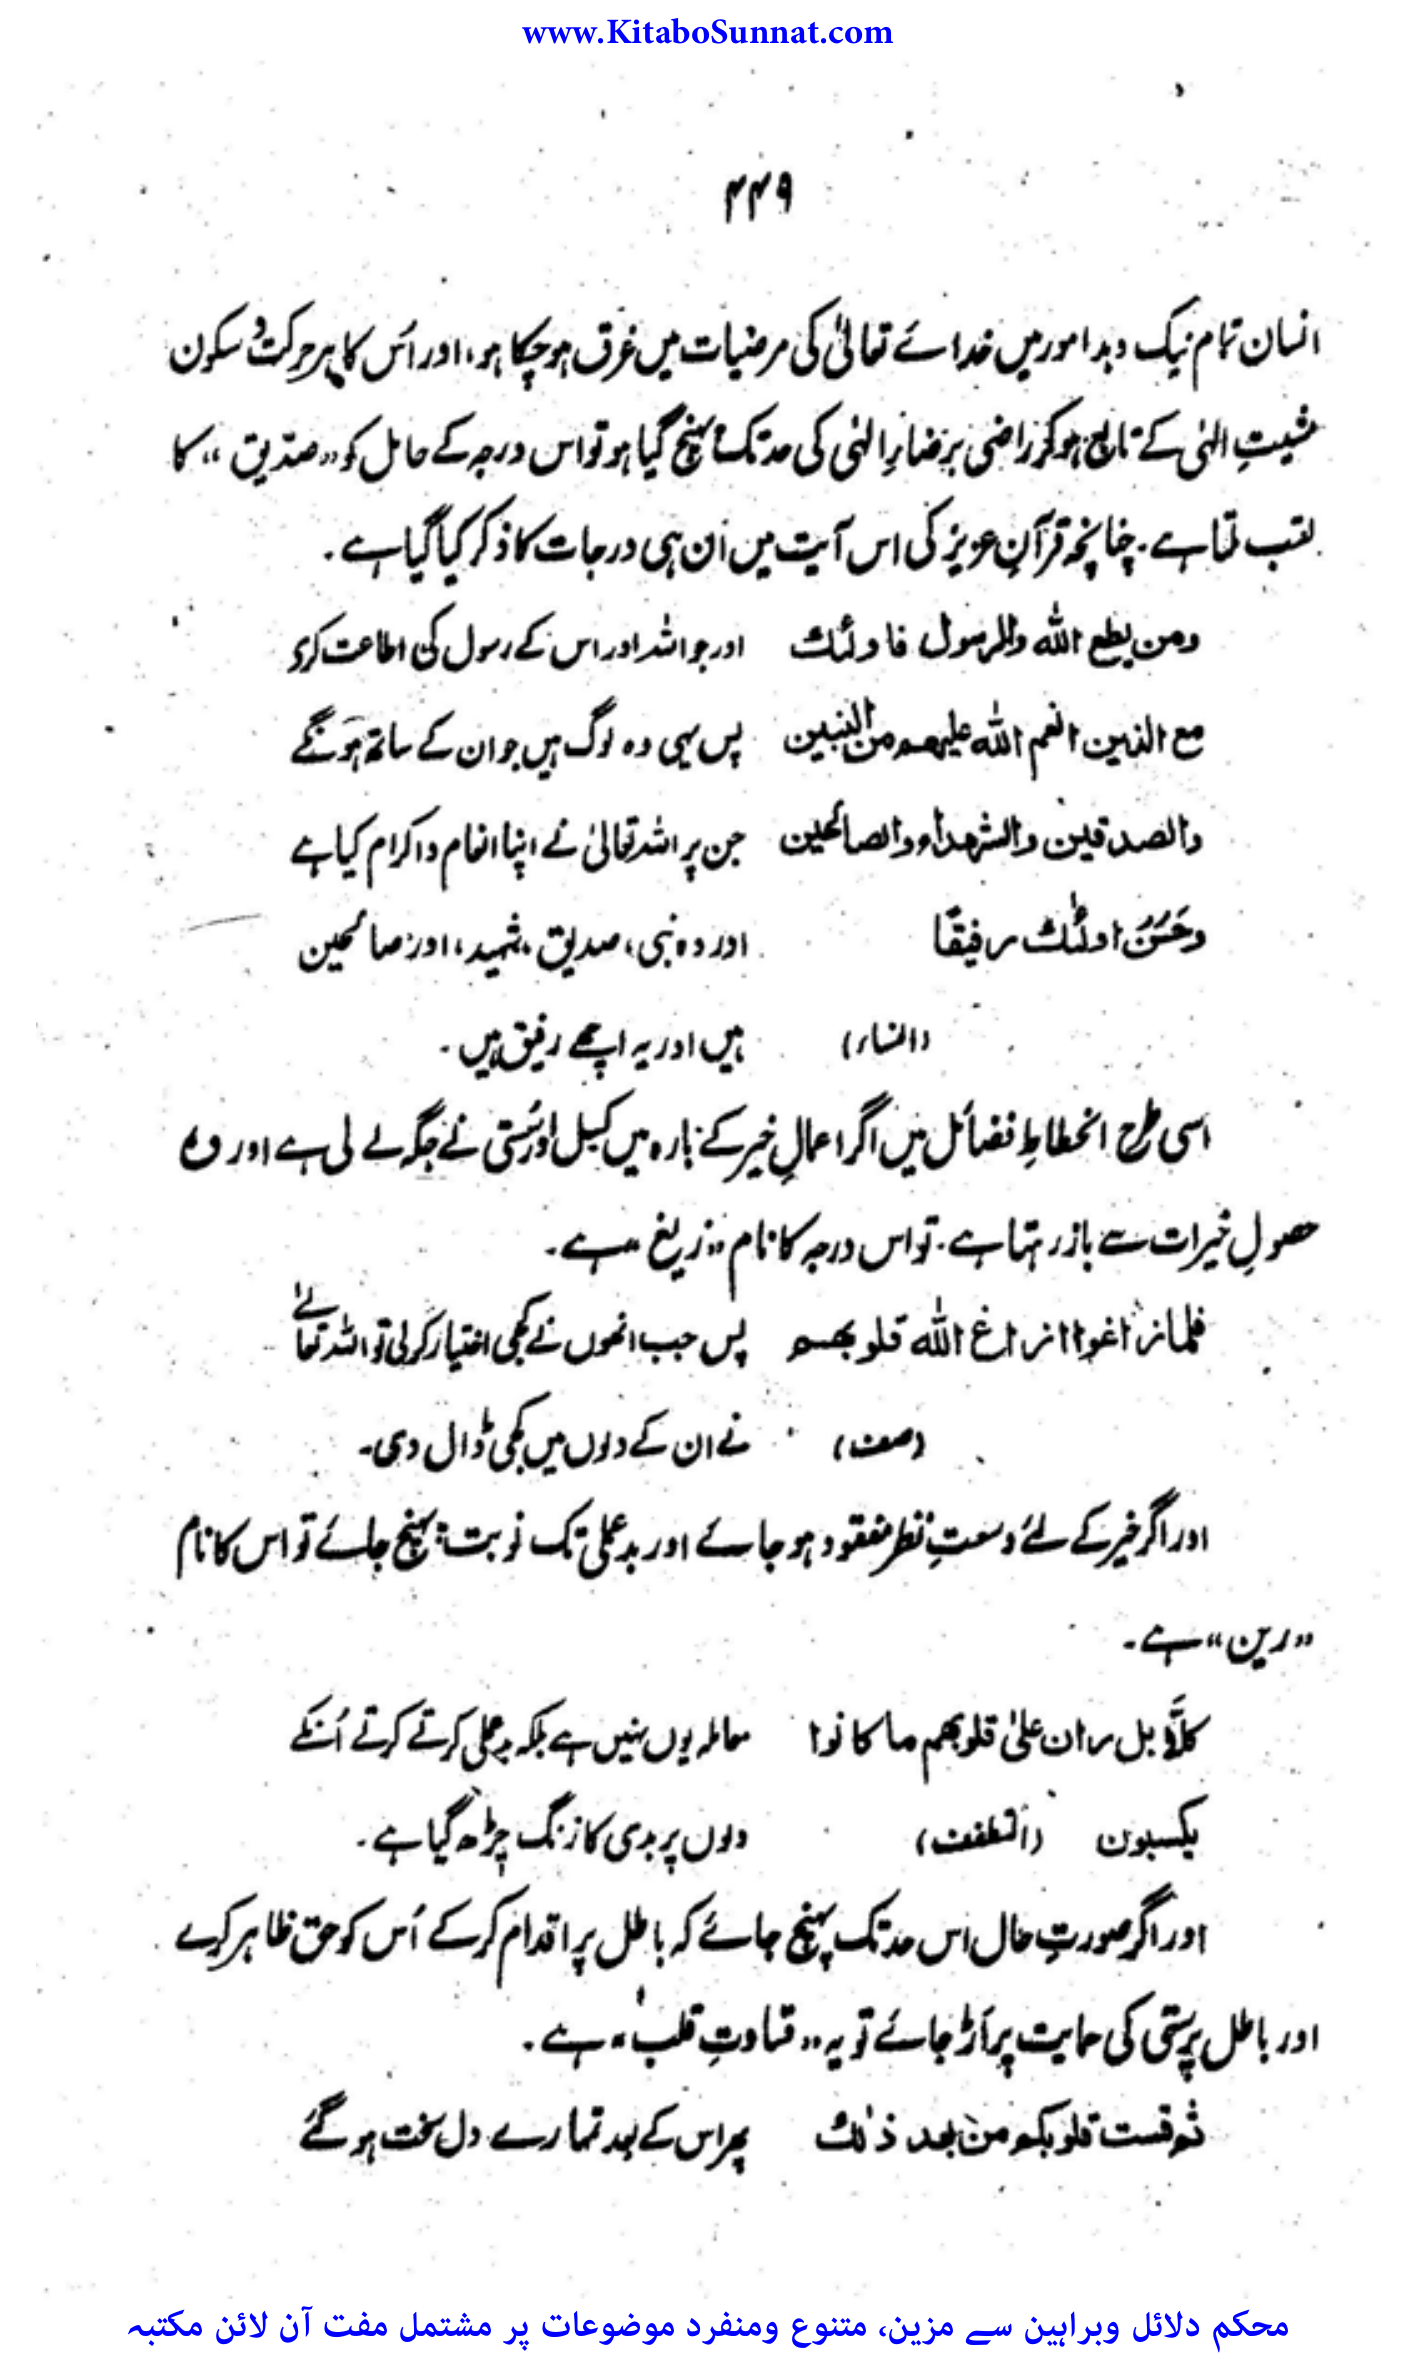 www.KitaboSunnat.com
۴۴۹
انسان تمام نیک و بد امور میں خدائے تعالیٰ کی مرضیات میں غرق ہو چکا ہو، اور اُس کا ہر حرکت و سکون
مشیتِ الہٰی کے تابع ہو کر راضی برضاءِ الہٰی کی حد تک پہنچ گیا ہو تو اس درجہ کے حامل کو "صدّیق" کا
لقب ملتا ہے۔ چنانچہ قرآنِ عزیز کی اس آیت میں اُن ہی درجات کا ذکر کیا گیا ہے۔
ومن یطع اللہ والرسول فاولئک اور جو اللہ اور اس کے رسول کی اطاعت کرے
مع الذین انعم اللہ علیھم من النبین پس یہی وہ لوگ ہیں جو ان کے ساتھ ہونگے
والصدقین والشھداء والصالحین جن پر اللہ تعالیٰ نے اپنا انعام و اکرام کیا ہے
وحَسُنَ اولٰئک رفیقًا اور وہ نبی، صدیق، شہید، اور صالحین
(النساء) ہیں اور یہ اچھے رفیق ہیں۔
اسی طرح انحطاطِ فضائل میں اگر اعمالِ خیر کے بارہ میں کسل اور سُستی نے جگہ لے لی ہے اور وہ
حصولِ خیرات سے باز رہتا ہے۔ تو اس درجہ کا نام "زیغ" ہے۔
فلما زاغوا ازاغ اللہ قلوبھم پس جب انھوں نے کجی اختیار کر لی تو اللہ تعالےٰ
(صف) نے ان کے دلوں میں کجی ڈال دی۔
اور اگر خیر کے لئے وسعتِ نظر مفقود ہو جائے اور بد عملی تک نوبت پہنچ جائے تو اس کا نام
"رین" ہے۔
کلَّا بل ران علیٰ قلوبھم ما کانوا معاملہ یوں نہیں ہے بلکہ بد عملی کرتے کرتے اُنکے
یکسبون (التطفیف) دلوں پر بدی کا زنگ چڑھ گیا ہے۔
اور اگر صورتِ حال اس حد تک پہنچ جائے کہ باطل پر اقدام کر کے اُس کو حق ظاہر کرے
اور باطل پرستی کی حمایت پر اَڑ جائے تو یہ "قساوتِ قلب" ہے۔
ثم قست قلوبکم من بعد ذٰلک پھر اس کے بعد تمہارے دل سخت ہو گئے
محکم دلائل وبراہین سے مزین، متنوع ومنفرد موضوعات پر مشتمل مفت آن لائن مکتبہ